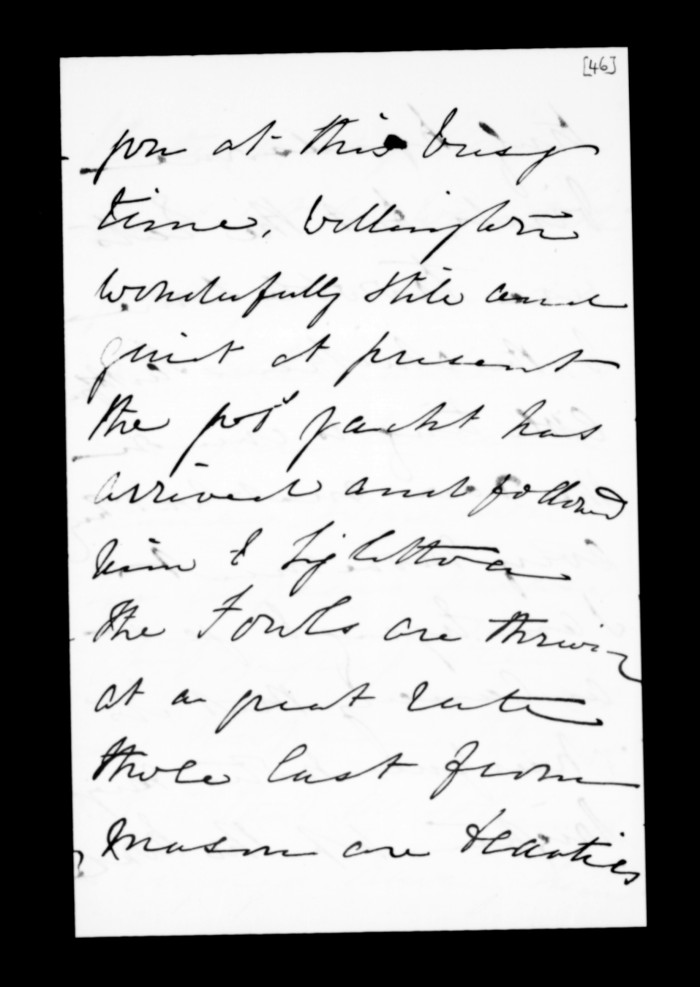 [46]
you at this busy
time. Wellington
wonderfully still and
quiet at present
the yacht has
arrived and followed
him to
The Fowls are thriving
at a great rate
those last from
Mason are Beauties